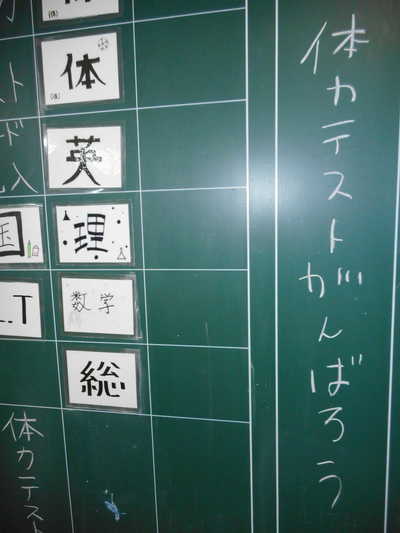 体力テストがんばろう
(体)
体
(体)
英
理
数学
総
国
体力テスト